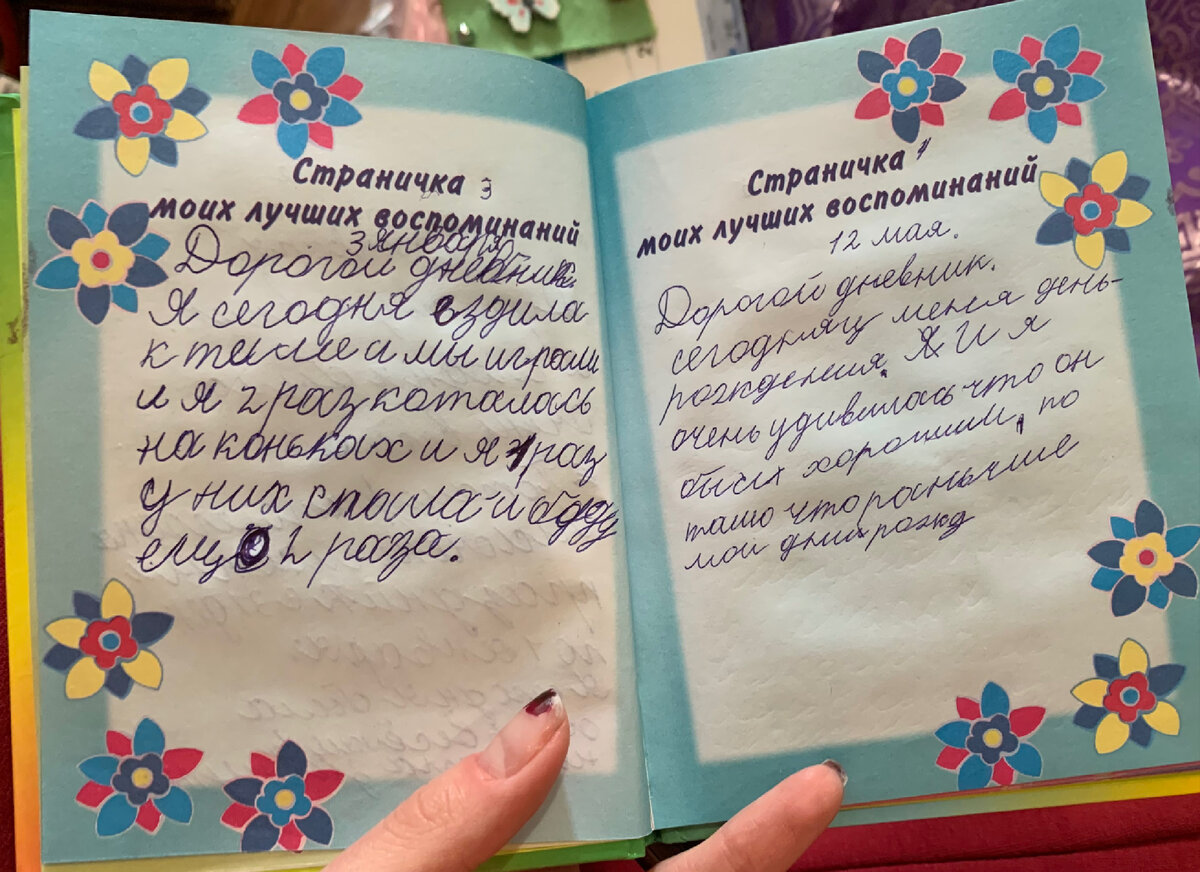 Страничка 3
моих лучших воспоминаний
3 января
Дорогой дневник.
Я сегодня ездила
к тёте и мы играли
и я 2 раз каталась
на коньках и я 1 раз
у них спала и буду
ещё 2 раза.
Страничка 4
моих лучших воспоминаний
12 мая.
Дорогой дневник.
сегодня у меня день-
рождения. И я
очень удивилась что он
был хорошим, по
тамо что раньше
мои дни рожд